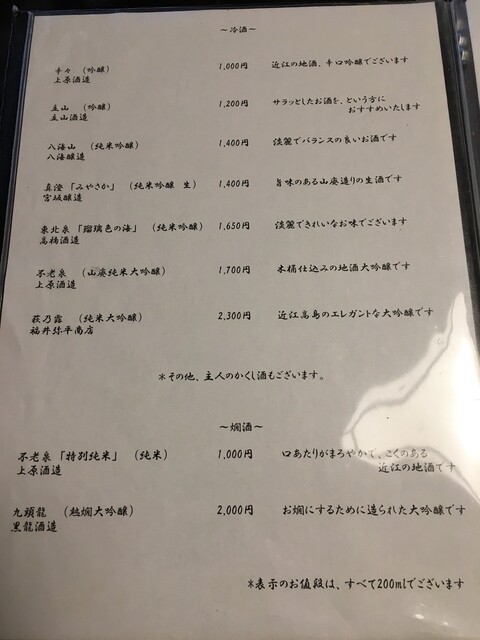 ～冷酒～
辛々 （吟醸） 1,000円 近江の地酒、辛口吟醸でございます
上原酒造
立山 （吟醸） 1,200円 サラッとしたお酒を、という方に
立山酒造 おすすめいたします
八海山 （純米吟醸） 1,400円 淡麗でバランスの良いお酒です
八海醸造
真澄「みやさか」（純米吟醸 生） 1,400円 旨味のある山廃造りの生酒です
宮坂醸造
東北泉「瑠璃色の海」（純米吟醸） 1,650円 淡麗できれいなお味でございます
高橋酒造
不老泉 （山廃純米大吟醸） 1,700円 木桶仕込みの地酒大吟醸です
上原酒造
萩乃露 （純米大吟醸） 2,300円 近江高島のエレガントな大吟醸です
福井弥平商店
＊その他、主人のかくし酒もございます。
～燗酒～
不老泉「特別純米」（純米） 1,000円 口あたりがまろやかで、こくのある
上原酒造 近江の地酒です
九頭龍 （熱燗大吟醸） 2,000円 お燗にするために造られた大吟醸です
黒龍酒造
＊表示のお値段は、すべて200mlでございます